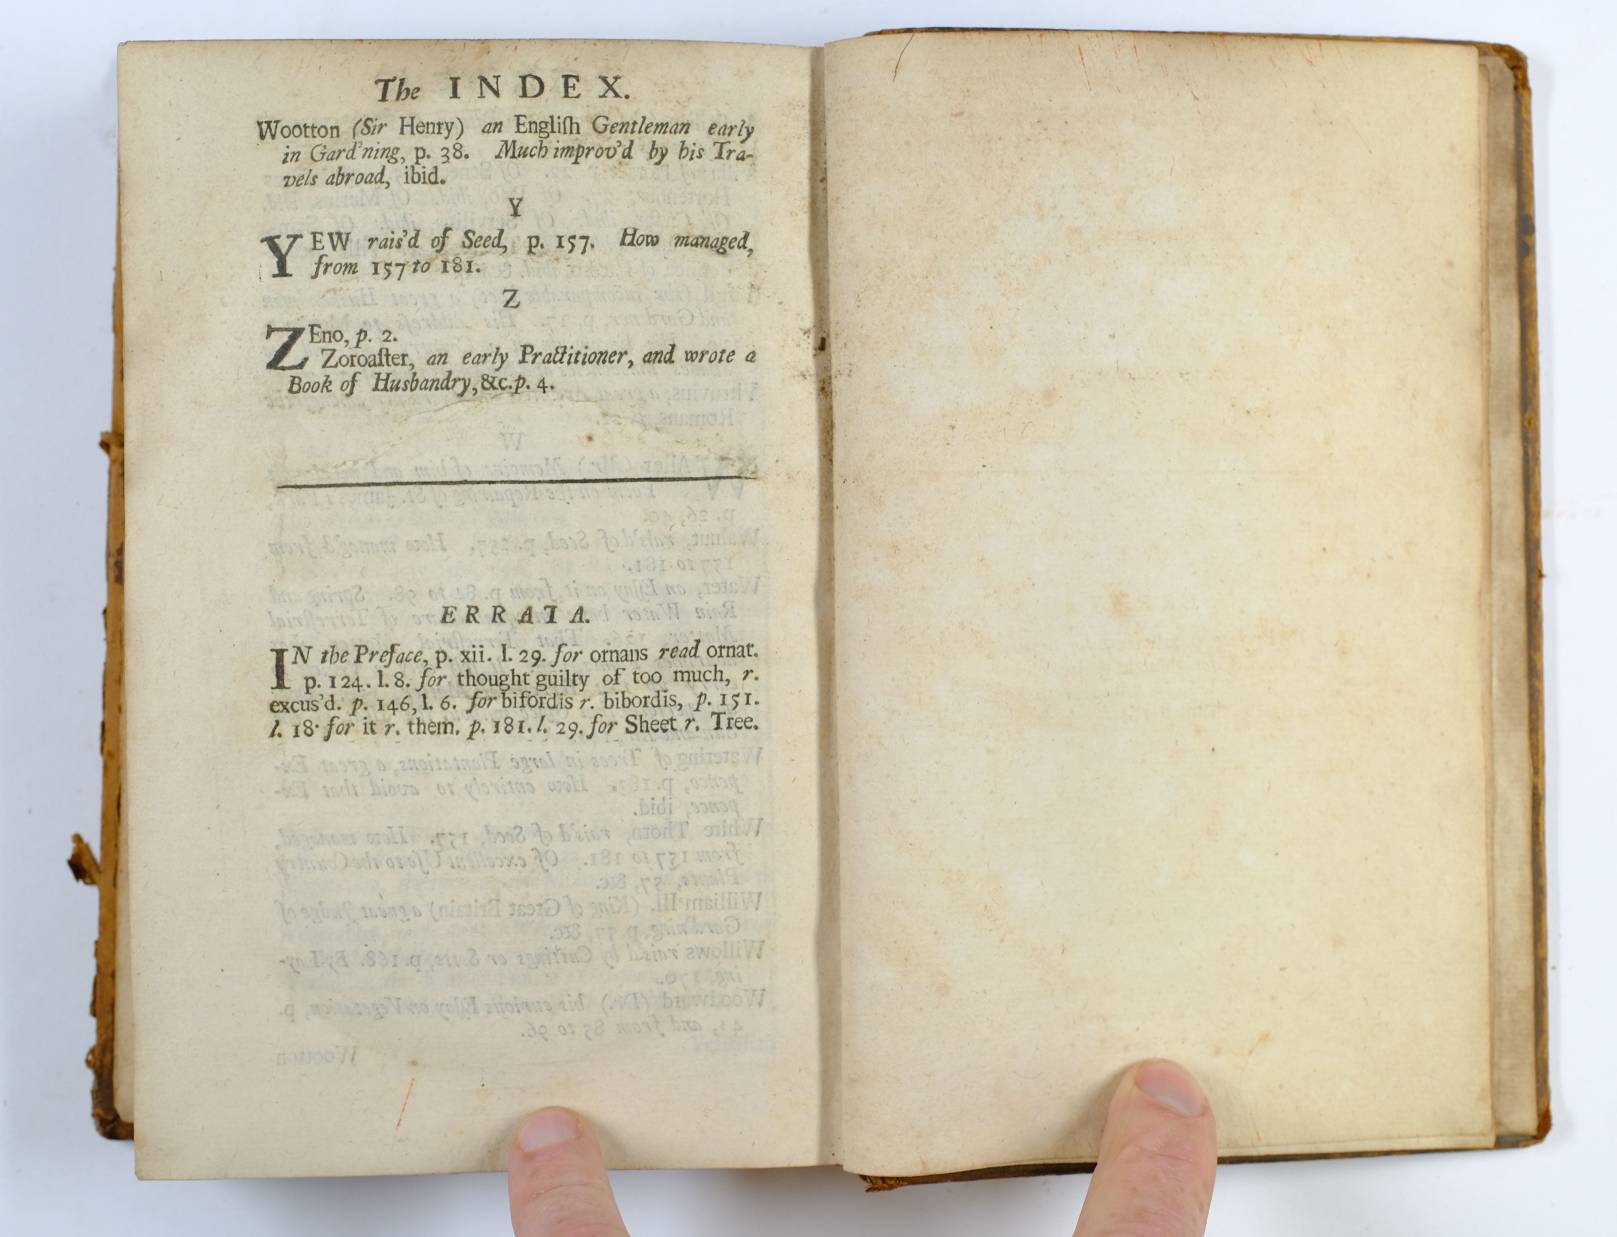 The INDEX.
Wootton (Sir Henry) an Engliſh Gentleman early
in Gard'ning, p. 38. Much improv'd by his Tra-
vels abroad, ibid.
Y
YEW rais'd of Seed, p. 157. How managed,
from 157 to 181.
Z
ZEno, p. 2.
Zoroaſter, an early Practitioner, and wrote a
Book of Husbandry, &c. p. 4.
ERRATA.
IN the Preface, p. xii. l. 29. for ornans read ornat.
p. 124. l. 8. for thought guilty of too much, r.
excus'd. p. 146, l. 6. for bifordis r. bibordis, p. 151.
l. 18. for it r. them. p. 181. l. 29. for Sheet r. Tree.